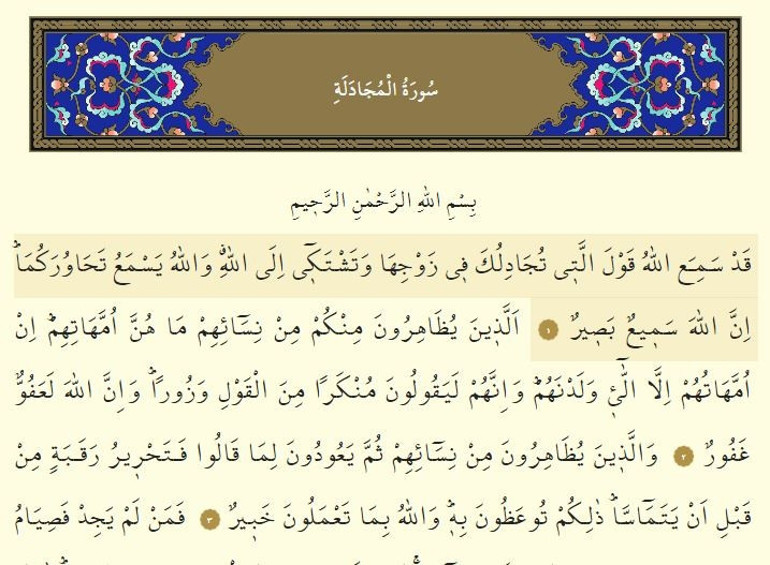 سُورَةُ الْمُجَادَلَةِ
بِسْمِ اللهِ الرَّحْمٰنِ الرَّح۪يمِ
قَدْ سَمِعَ اللهُ قَوْلَ الَّت۪ي تُجَادِلُكَ ف۪ي زَوْجِهَا وَتَشْتَك۪ٓي اِلَى اللهِۗ وَاللهُ يَسْمَعُ تَحَاوُرَكُمَاۜ
اِنَّ اللهَ سَم۪يعٌ بَص۪يرٌ ١ اَلَّذ۪ينَ يُظَاهِرُونَ مِنْكُمْ مِنْ نِسَٓائِهِمْ مَا هُنَّ اُمَّهَاتِهِمْۜ اِنْ
اُمَّهَاتُهُمْ اِلَّا الّٰٓـ۪ٔي وَلَدْنَهُمْۜ وَاِنَّهُمْ لَيَقُولُونَ مُنْكَرًا مِنَ الْقَوْلِ وَزُورًاۜ وَاِنَّ اللهَ لَعَفُوٌّ
غَفُورٌ ٢ وَالَّذ۪ينَ يُظَاهِرُونَ مِنْ نِسَٓائِهِمْ ثُمَّ يَعُودُونَ لِمَا قَالُوا فَتَحْر۪يرُ رَقَبَةٍ مِنْ
قَبْلِ اَنْ يَتَمَٓاسَّاۜ ذٰلِكُمْ تُوعَظُونَ بِه۪ۜ وَاللهُ بِمَا تَعْمَلُونَ خَب۪يرٌ ٣ فَمَنْ لَمْ يَجِدْ فَصِيَامُ